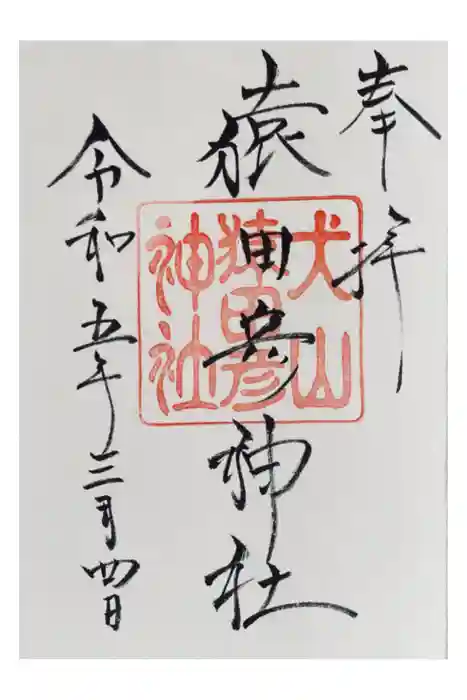 奉拝
猿田彦神社
犬山
猿田彦
神社
令和五年三月四日